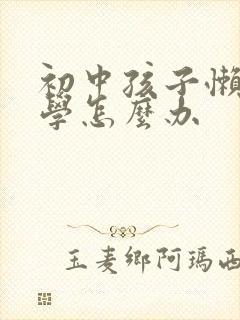 初中孩子懶
學怎麼办
玉麦鄉阿瑪西